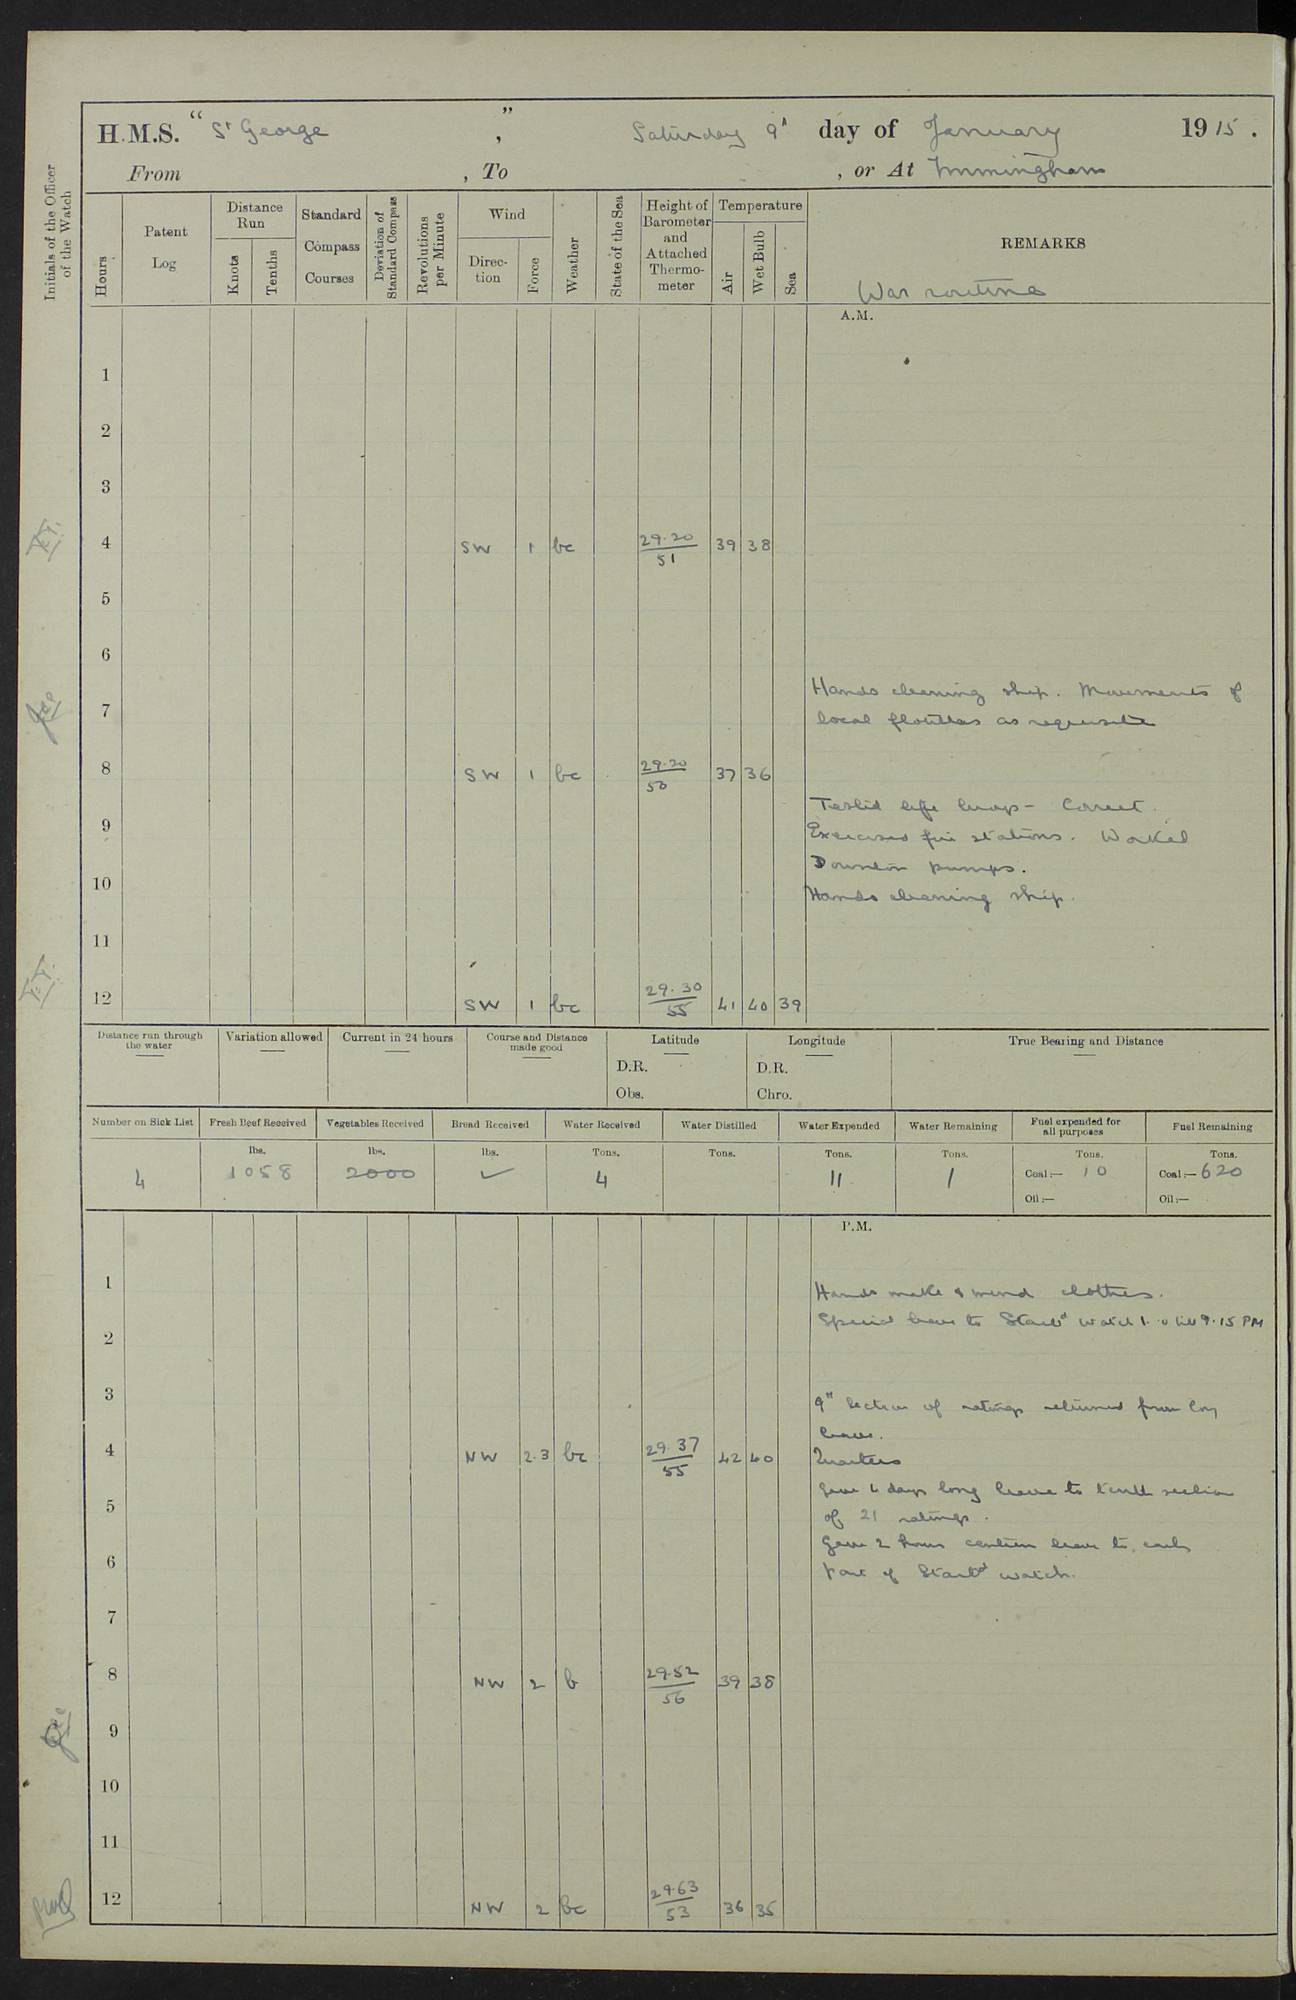 H.M.S. "St George", Saturday 9th day of January 1915.
From , To , or At Immingham
Initials of the Officer of the Watch
Hours
Patent Log
Distance Run
Knots
Tenths
Standard Compass Courses
Deviation of Standard Compass
Revolutions per Minute
Wind
Direction
Force
Weather
State of the Sea
Height of Barometer and Attached Thermometer
Temperature
Air
Wet Bulb
Sea
REMARKS
War routine
A.M.
1
2
3
4 SW 1 bc 29.20/51 39 38
5
6
Hands cleaning ship. Movements of
7 local flotillas as requisite
8 SW 1 bc 29.20/50 37 36
Tested life buoys - Correct.
9 Exercised fire stations. Worked
Downton pumps.
10 Hands cleaning ship.
11
12 SW 1 bc 29.30/55 41 40 39
Distance run through the water
Variation allowed
Current in 24 hours
Course and Distance made good
Latitude
D.R.
Obs.
Longitude
D.R.
Chro.
True Bearing and Distance
Number on Sick List
4
Fresh Beef Received
lbs.
1058
Vegetables Received
lbs.
2000
Bread Received
lbs.
✓
Water Received
Tons.
4
Water Distilled
Tons.
Water Expended
Tons.
11
Water Remaining
Tons.
1
Fuel expended for all purposes
Tons.
Coal:— 10
Oil:—
Fuel Remaining
Tons.
Coal:— 620
Oil:—
P.M.
1 Hands make & mend clothes.
2 Special leave to Starbd watch 1.0 till 9.15 PM
3
9th Section of ratings returned from long
leave.
4 NW 2.3 bc 29.37/55 42 40 Quarters
Gave 4 days long leave to tenth section
5 of 21 ratings.
Gave 2 hours canteen leave to each
6 part of Starbd watch.
7
8 NW 2 b 29.52/56 39 38
9
10
11
12 NW 2 bc 29.63/53 36 35